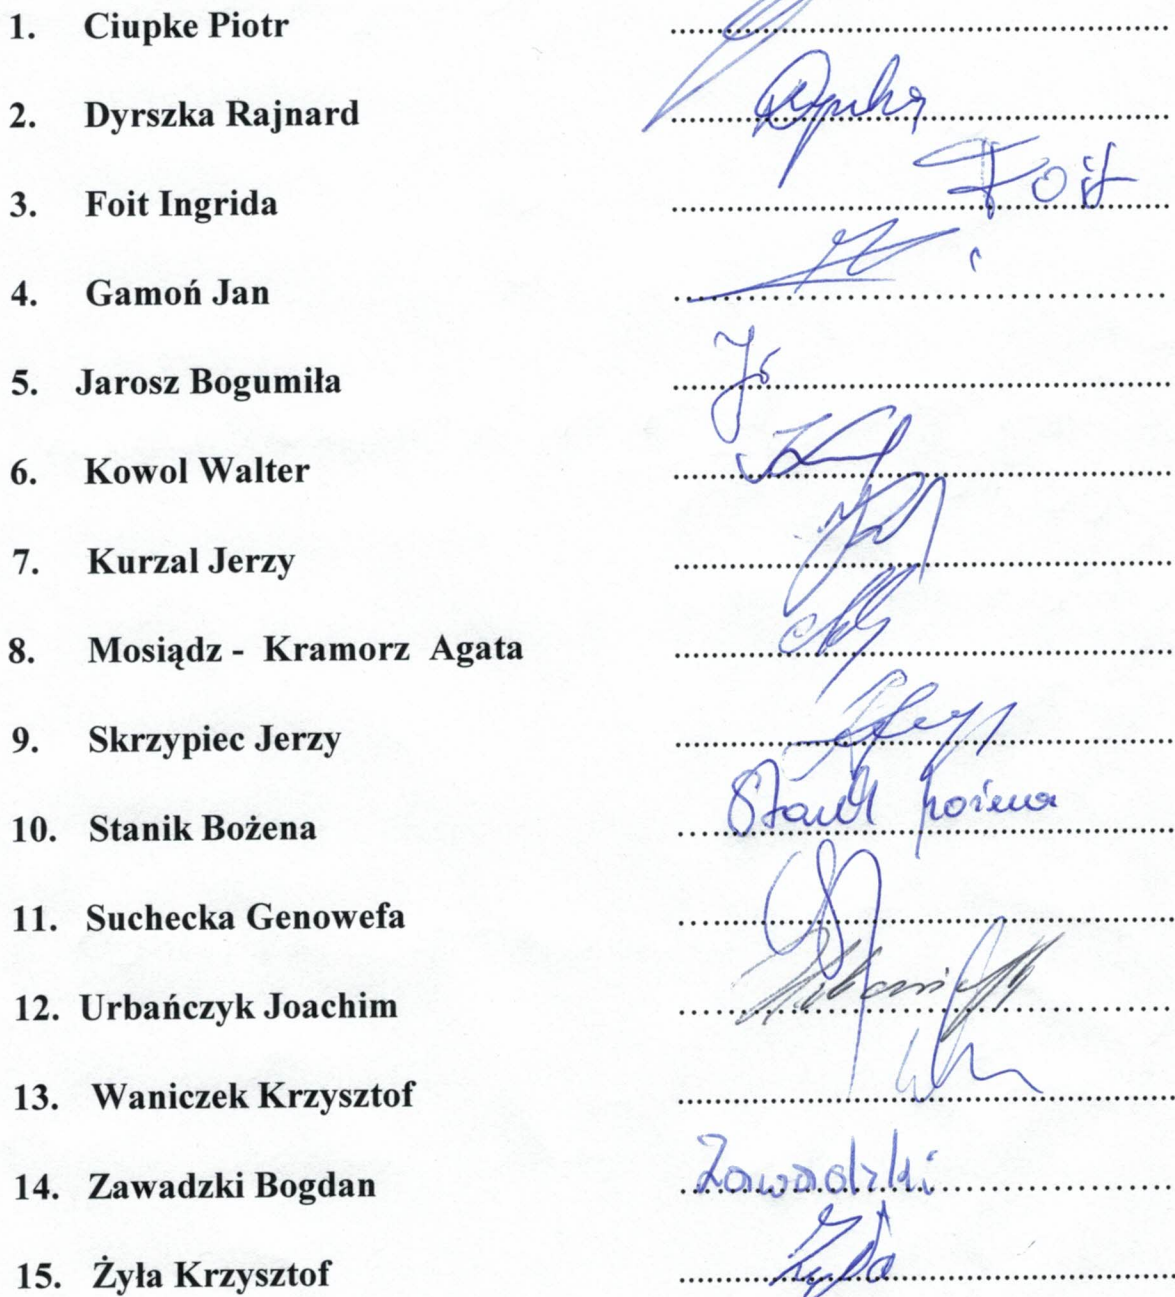 1. Ciupke Piotr ........................................
2. Dyrszka Rajnard ........................................
3. Foit Ingrida ........................................ Foit
4. Gamoń Jan ........................................
5. Jarosz Bogumiła ........................................
6. Kowol Walter ........................................
7. Kurzal Jerzy ........................................
8. Mosiądz - Kramorz Agata ........................................
9. Skrzypiec Jerzy ........................................
10. Stanik Bożena ........................................ Stanik Bożena
11. Suchecka Genowefa ........................................
12. Urbańczyk Joachim ........................................
13. Waniczek Krzysztof ........................................
14. Zawadzki Bogdan ........................................ Zawadzki
15. Żyła Krzysztof ........................................ Żyła